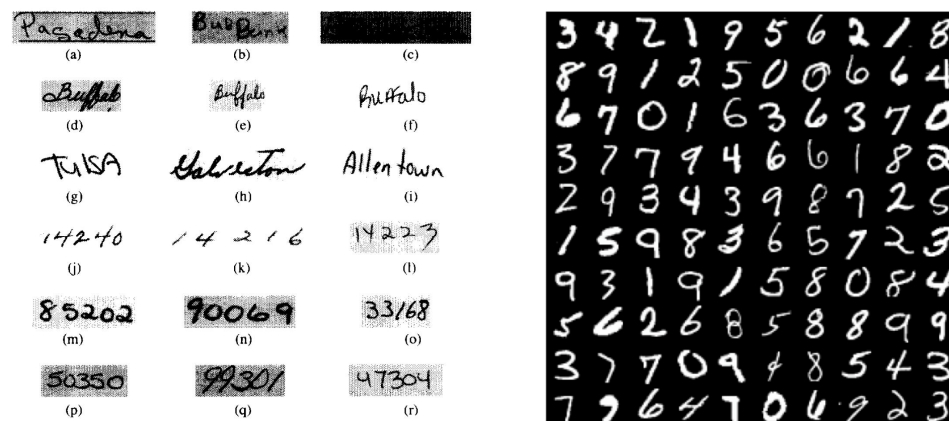 Pasadena BurBank
(a) (b) (c)
Buffalo Buffalo Buffalo
(d) (e) (f)
TulSA Galveston Allentown
(g) (h) (i)
14240 14216 14223
(j) (k) (l)
85202 90069 33168
(m) (n) (o)
50350 99301 47304
(p) (q) (r)
3 4 2 1 9 5 6 2 1 8
8 9 1 2 5 0 0 6 6 4
6 7 0 1 6 3 6 3 7 0
3 7 7 9 4 6 6 1 8 2
2 9 3 4 3 9 8 7 2 5
1 5 9 8 3 6 5 7 2 3
9 3 1 9 1 5 8 0 8 4
5 6 2 6 8 5 8 8 9 9
3 7 7 0 9 4 8 5 4 3
7 9 6 4 7 0 6 9 2 3